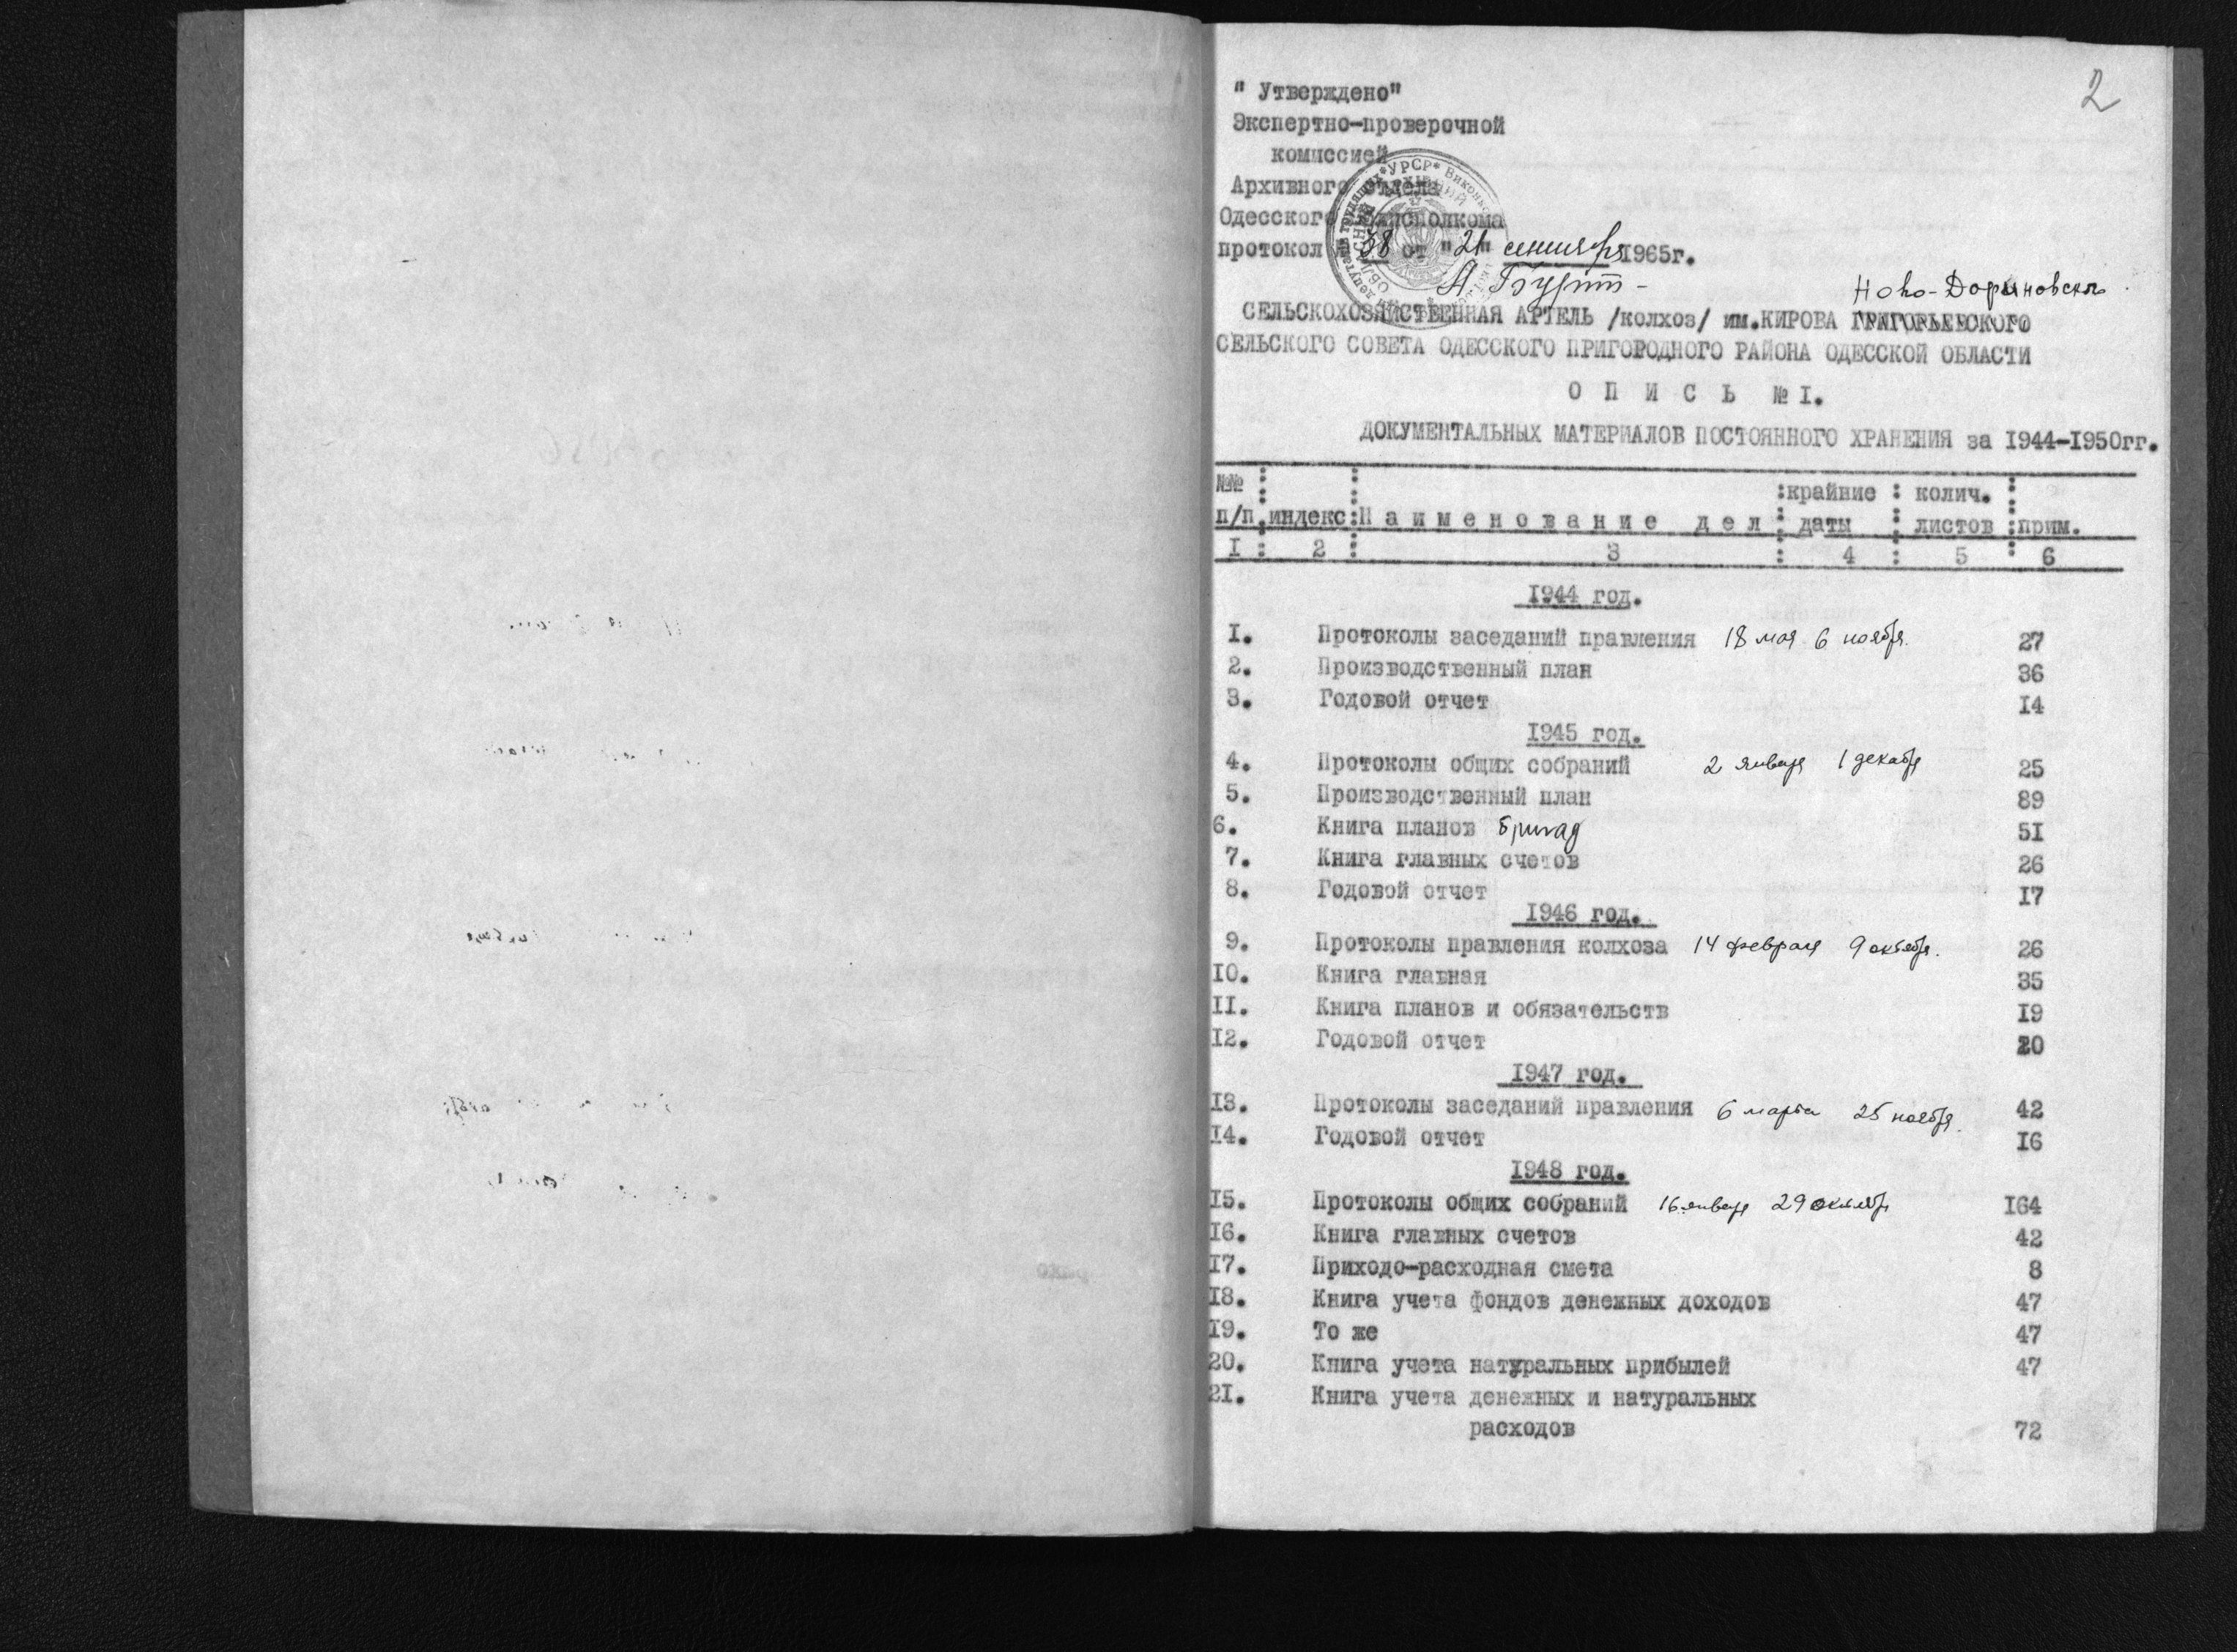 2
" Утверждено"
Экспертно-проверочной
комиссией
Архивного отдела
Одесского облисполкома
протокол 38 от "21" сентября 1965г.
Ново-Дофиновского
СЕЛЬСКОХОЗЯЙСТВЕННАЯ АРТЕЛЬ /колхоз/ им.КИРОВА ГРИГОРЬЕВСКОГО
СЕЛЬСКОГО СОВЕТА ОДЕССКОГО ПРИГОРОДНОГО РАЙОНА ОДЕССКОЙ ОБЛАСТИ
О П И С Ь № I.
ДОКУМЕНТАЛЬНЫХ МАТЕРИАЛОВ ПОСТОЯННОГО ХРАНЕНИЯ за I944-I950гг.
№№ : : :крайние : колич. :
п/п.индекс:Н а и м е н о в а н и е д е л : даты : листов :прим.
I : 2 : 3 : 4 : 5 : 6
I944 год.
I. Протоколы заседаний правления 18 мая 6 ноября. 27
2. Производственный план 36
3. Годовой отчет I4
I945 год.
4. Протоколы общих собраний 2 января 1 декабря 25
5. Производственный план 89
6. Книга планов бригад 5I
7. Книга главных счетов 26
8. Годовой отчет I7
I946 год.
9. Протоколы правления колхоза 14 февраля 9 октября. 26
I0. Книга главная 35
II. Книга планов и обязательств I9
I2. Годовой отчет 20
I947 год.
I3. Протоколы заседаний правления 6 марта 25 ноября. 42
I4. Годовой отчет I6
I948 год.
I5. Протоколы общих собраний 16 января 29 октября I64
I6. Книга главных счетов 42
I7. Приходо-расходная смета 8
I8. Книга учета фондов денежных доходов 47
I9. То же 47
20. Книга учета натуральных прибылей 47
2I. Книга учета денежных и натуральных
расходов 72